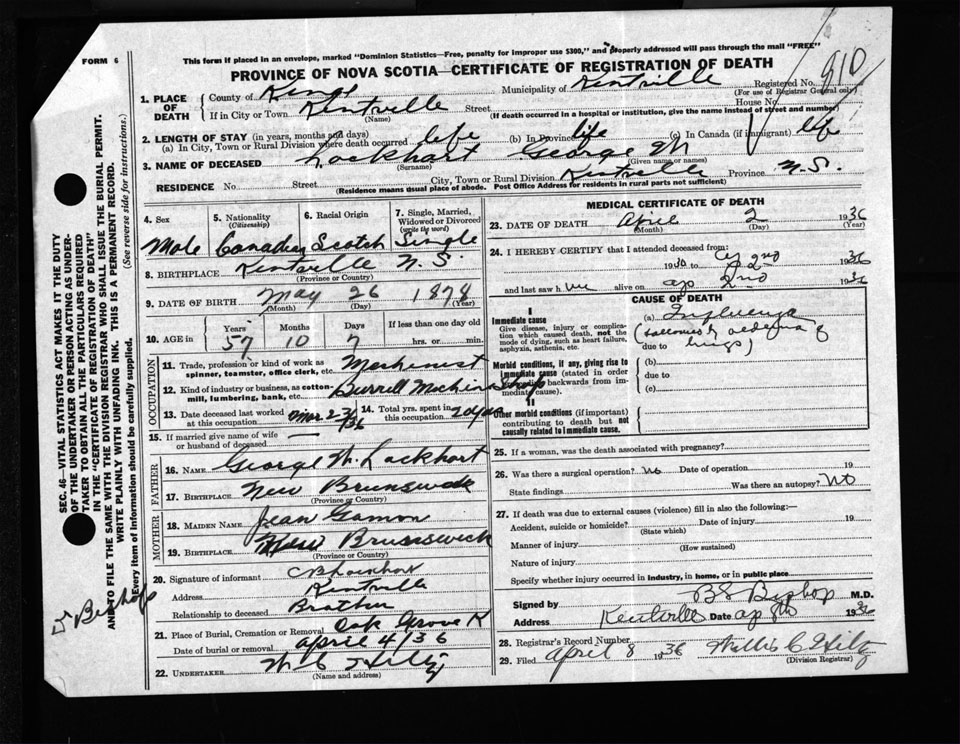 FORM 6
This form if placed in an envelope, marked "Dominion Statistics—Free, penalty for improper use $300," and properly addressed will pass through the mail "FREE"
PROVINCE OF NOVA SCOTIA—CERTIFICATE OF REGISTRATION OF DEATH
910
1. PLACE OF DEATH
County of Kings Municipality of Kentville Registered No.
(For use of Registrar General only)
If in City or Town Kentville Street House No.
(Name) (If death occurred in a hospital or institution, give the name instead of street and number)
2. LENGTH OF STAY (in years, months and days)
(a) In City, Town or Rural Division where death occurred life (b) In Province life (c) In Canada (if immigrant) life
3. NAME OF DECEASED Lockhart George M
(Surname) (Given name or names)
RESIDENCE No. Street City, Town or Rural Division Kentville Province N.S.
(Residence means usual place of abode. Post Office Address for residents in rural parts not sufficient)
4. Sex 5. Nationality (Citizenship) 6. Racial Origin 7. Single, Married, Widowed or Divorced (write the word)
Male Canadian Scotch Single
8. BIRTHPLACE Kentville N.S.
(Province or Country)
9. DATE OF BIRTH May 26 1878
(Month) (Day) (Year)
10. AGE in Years Months Days If less than one day old
57 10 7 hrs. or min.
OCCUPATION
11. Trade, profession or kind of work as spinner, teamster, office clerk, etc. Machinist
12. Kind of industry or business, as cotton-mill, lumbering, bank, etc. Burrell Machine Shop
13. Date deceased last worked at this occupation Mar 23/36 14. Total yrs. spent in this occupation 20 yrs
15. If married give name of wife or husband of deceased —
FATHER
16. NAME George W. Lockhart
17. BIRTHPLACE New Brunswick
(Province or Country)
MOTHER
18. MAIDEN NAME Jean Gamon
19. BIRTHPLACE New Brunswick
(Province or Country)
20. Signature of informant C B Lockhart
Address Kentville
Relationship to deceased Brother
21. Place of Burial, Cremation or Removal Oak Grove K
Date of burial or removal April 4/36
22. UNDERTAKER W C Hiltz
(Name and address)
MEDICAL CERTIFICATE OF DEATH
23. DATE OF DEATH April 2 1936
(Month) (Day) (Year)
24. I HEREBY CERTIFY that I attended deceased from:
1936
and last saw h alive on ap 2nd 1936
CAUSE OF DEATH
I
Immediate cause
Give disease, injury or complication which caused death, not the mode of dying, such as heart failure, asphyxia, asthenia, etc.
(a) Influenza
(followed by oedema of
due to lungs)
Morbid conditions, if any, giving rise to immediate cause (stated in order proceeding backwards from immediate cause).
(b)
due to
(c)
II
Other morbid conditions (if important) contributing to death but not causally related to immediate cause.
25. If a woman, was the death associated with pregnancy?
26. Was there a surgical operation? No Date of operation 19
State findings Was there an autopsy? No
27. If death was due to external causes (violence) fill in also the following:—
Accident, suicide or homicide? Date of injury 19
(State which)
Manner of injury
(How sustained)
Nature of injury
Specify whether injury occurred in industry, in home, or in public place
Signed by B S Bishop M.D.
Address Kentville Date ap 8th 1936
28. Registrar's Record Number
29. Filed April 8 1936 Willis C Hiltz
(Division Registrar)
SEC. 46—VITAL STATISTICS ACT MAKES IT THE DUTY
OF THE UNDERTAKER OR PERSON ACTING AS UNDER-
TAKER TO OBTAIN ALL THE PARTICULARS REQUIRED
IN THE "CERTIFICATE OF REGISTRATION OF DEATH"
AND TO FILE THE SAME WITH THE DIVISION REGISTRAR WHO SHALL ISSUE THE BURIAL PERMIT.
WRITE PLAINLY WITH UNFADING INK. THIS IS A PERMANENT RECORD.
Every item of information should be carefully supplied. (See reverse side for instructions.)
Bishop